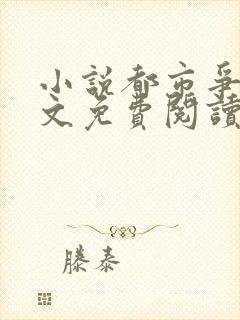 小說都市爭
文免費閱讀
滕泰